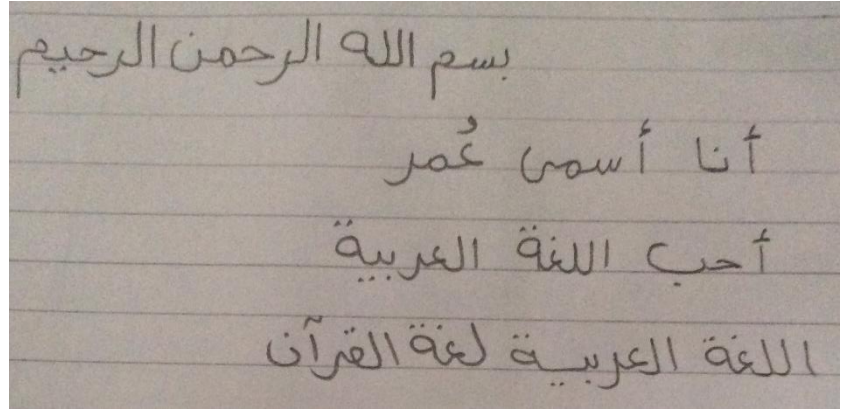 بسم الله الرحمن الرحيم
أنا أسمى عُمر
أحب اللغة العربية
اللغة العربية لغة القرآن